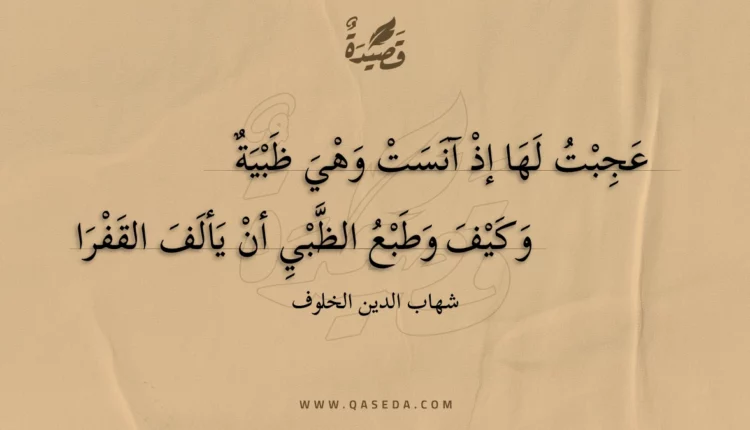 قَصِيدَةٌ
عَجِبْتُ لَهَا إذْ آنَسَتْ وَهْيَ ظَبْيَةٌ
وَكَيْفَ وَطَبْعُ الظَّبْيِ أنْ يَألَفَ القَفْرَا
شهاب الدين الخلوف
WWW.QASEDA.COM